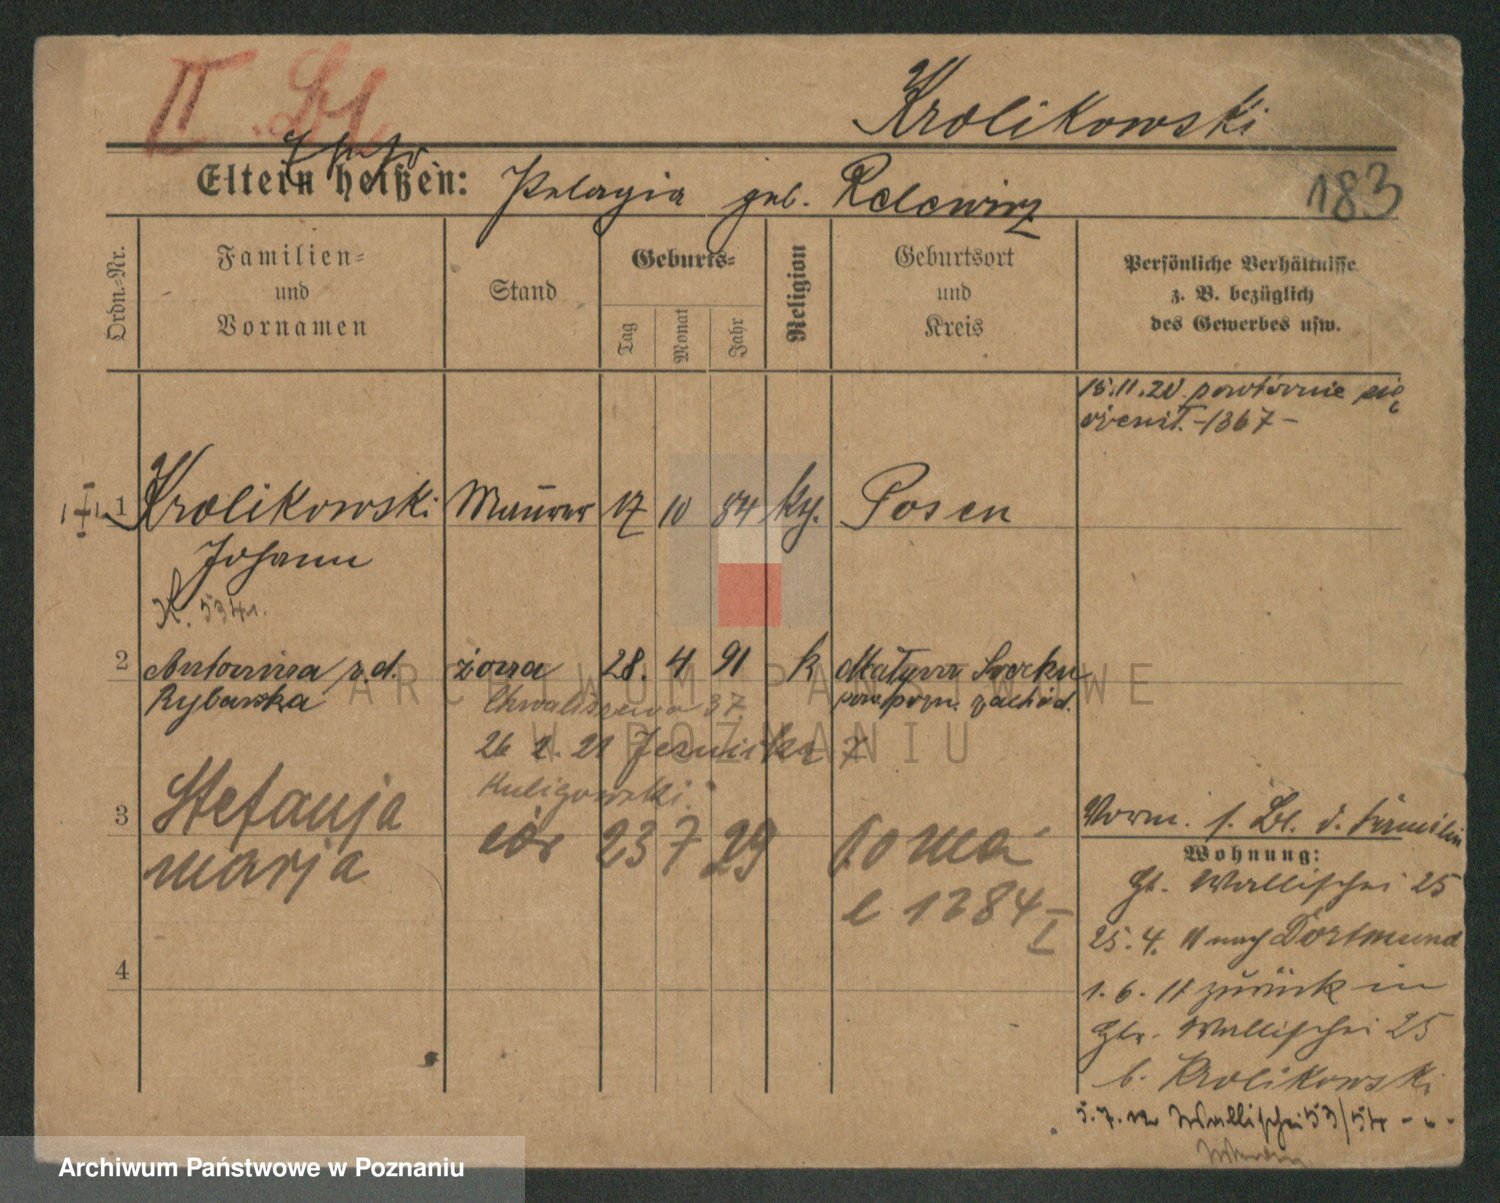 II. Bl.
Krolikowski
Eltern heißen: Pelagia geb. Relewicz
183
Ordn.-Nr.
Familien-
und
Vornamen
Stand
Geburts-
Tag
Monat
Jahr
Religion
Geburtsort
und
Kreis
Persönliche Verhältnisse
z. B. bezüglich
des Gewerbes usw.
15.11.20. powtórnie się
ożenił. -1367-
1 Krolikowski Maurer 17 10 84 kth. Posen
Johann
K. 534
2 Antonina z.d. żona 28. 4 91 k
Rybarska Chwaliszewo 37 pow. pozn. zachod.
26 2. 21 7
Kuligowski
3 Stefanja cór 23 7 29
marja
l 1284 I
Vorm. s. Bl. d. Familie
Wohnung:
Gr. Wallischei 25
25. 4. 11 nach Dortmund
1. 6. 11 zurück in
Gbr. Wallischei 25
b. Krolikowski
5. 7. 12 Wallischei 53/54 - " -
4
ARCHIWUM PAŃSTWOWE
W POZNANIU
Archiwum Państwowe w Poznaniu